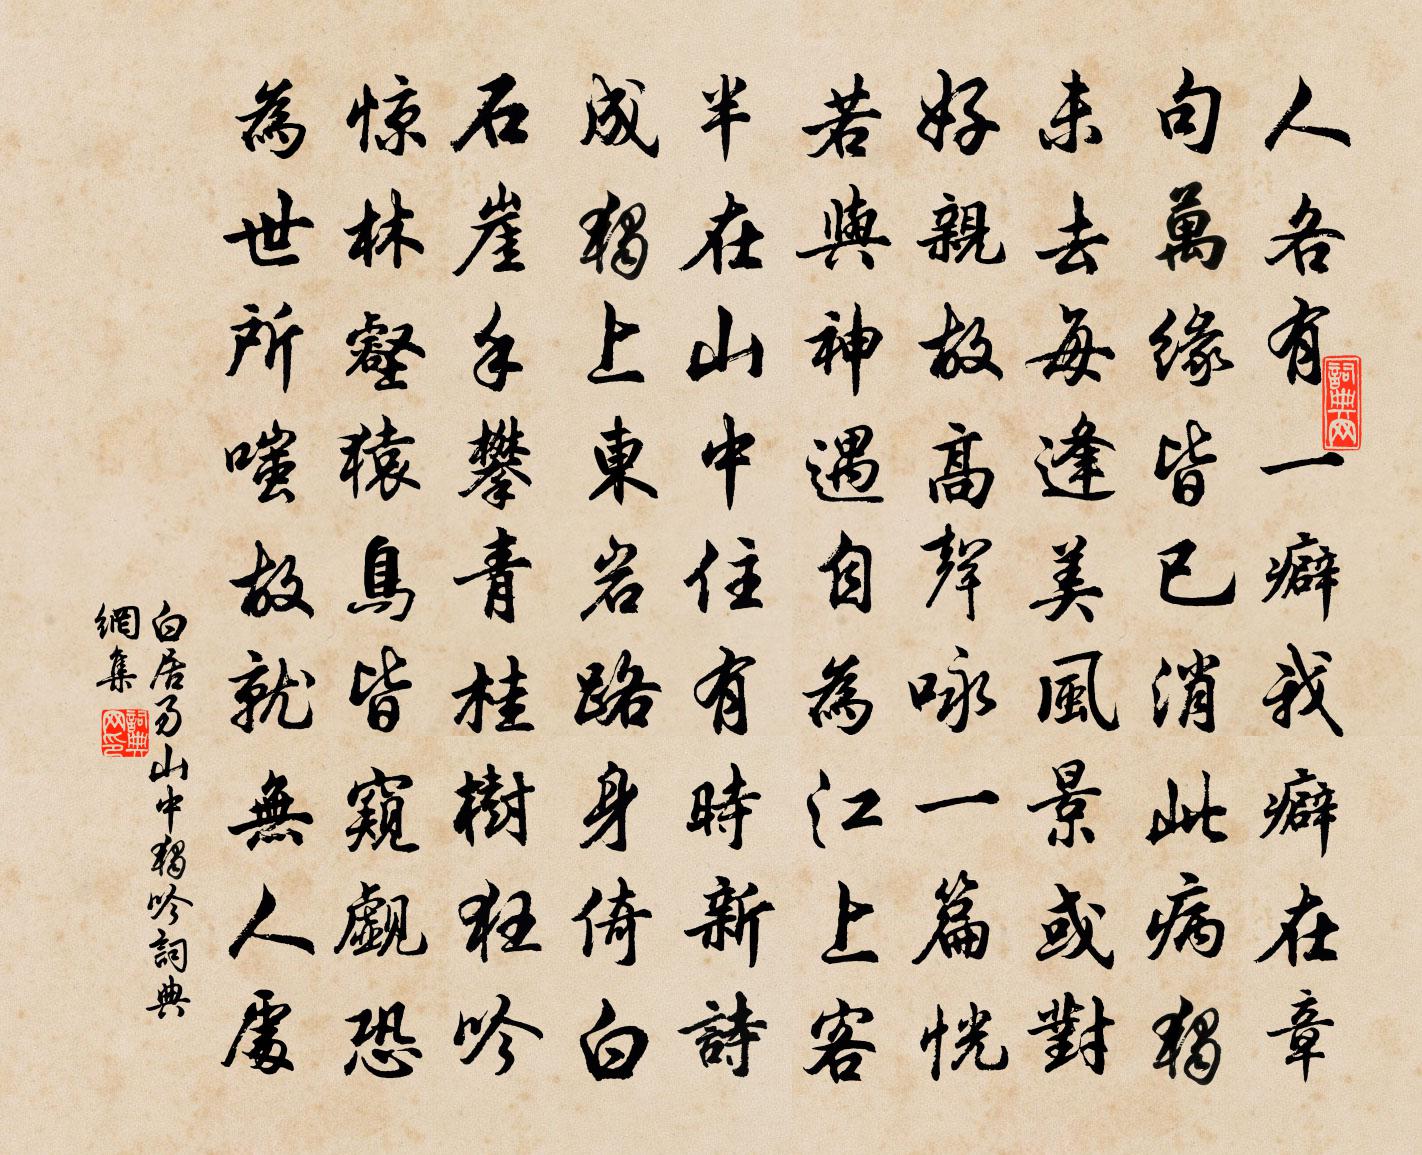 人各有一癖我癖在章
句萬緣皆已消此病獨
未去每逢美風景或對
好親故高聲咏一篇恍
若與神遇自為江上客
半在山中住有時新詩
成獨上東岩路身倚白
石崖手攀青桂樹狂吟
惊林壑猿鳥皆窺覷恐
為世所嗤故就無人處
白居易山中獨吟詞典
網集
詞典网
詞典
网印